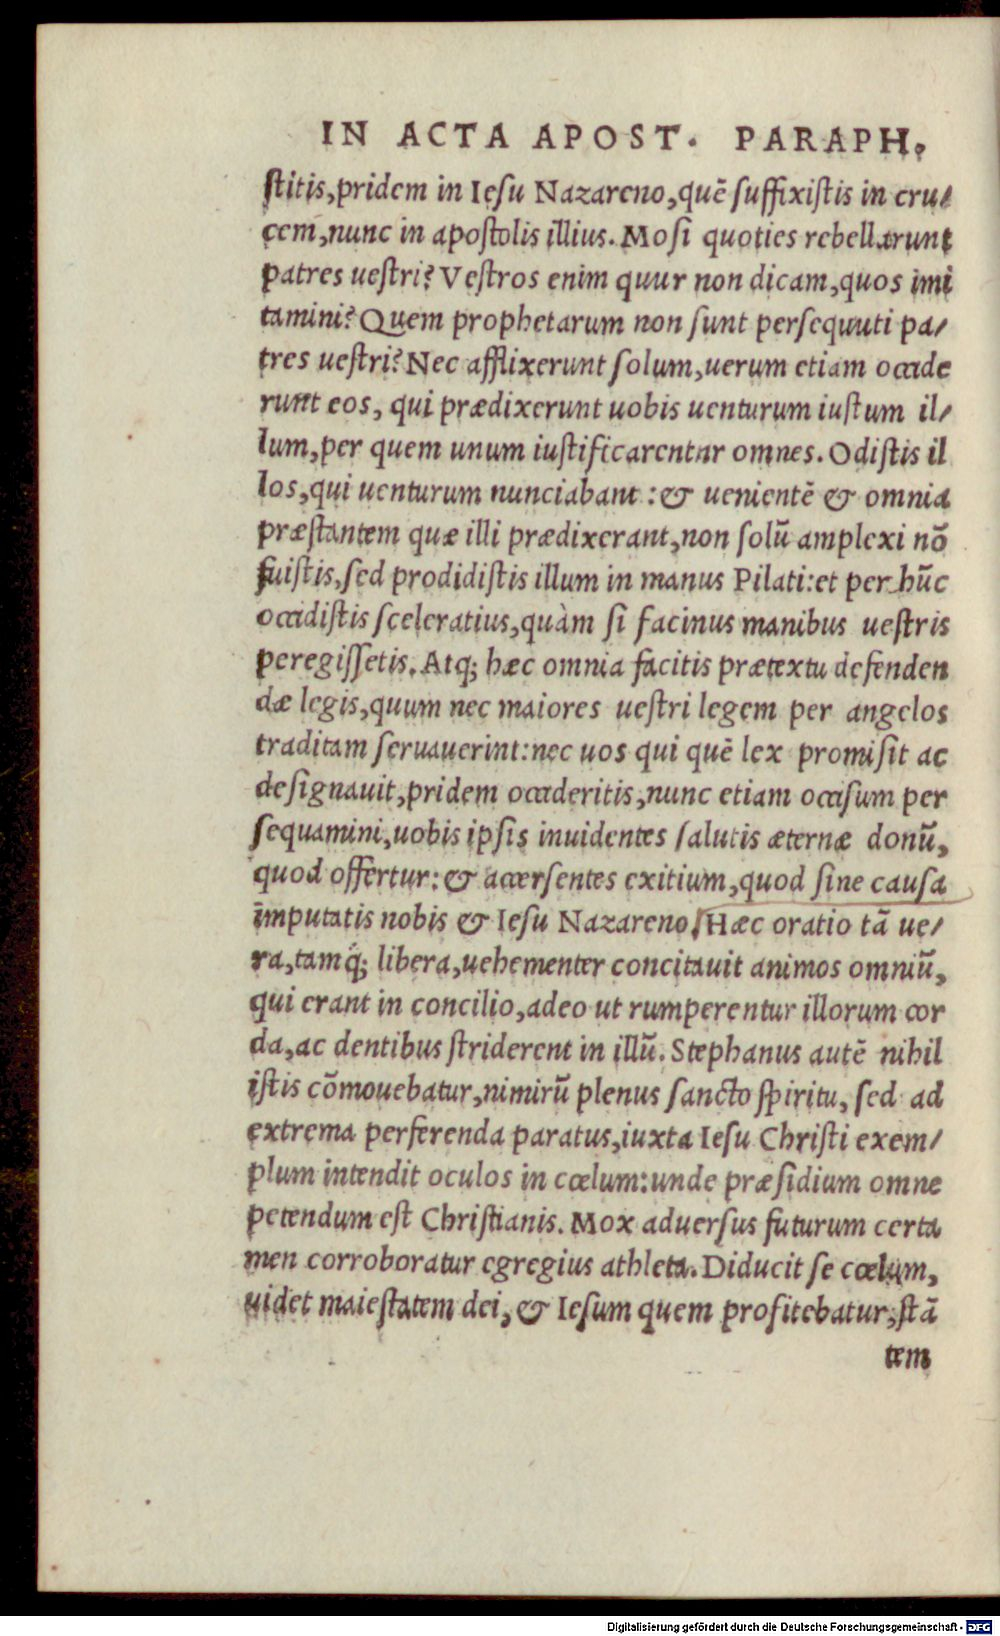 IN ACTA APOST. PARAPH.
stitis, pridem in Iesu Nazareno, quē suffixistis in cru/
cem, nunc in apostolis illius. Mosi quoties rebellarunt
patres uestri? Vestros enim quur non dicam, quos imi
tamini? Quem prophetarum non sunt persequuti pa/
tres uestri? Nec afflixerunt solum, uerum etiam occide
runt eos, qui prædixerunt uobis uenturum iustum il/
lum, per quem unum iustificarentur omnes. Odistis il
los, qui uenturum nunciabant: & uenientē & omnia
præstantem quæ illi prædixerant, non solū amplexi nō
fuistis, sed prodidistis illum in manus Pilati: et per hūc
occidistis sceleratius, quàm si facinus manibus uestris
peregissetis. Atq; hæc omnia facitis prætextu defenden
dæ legis, quum nec maiores uestri legem per angelos
traditam seruauerint: nec uos qui quē lex promisit ac
designauit, pridem occideritis, nunc etiam occisum per
sequamini, uobis ipsis inuidentes salutis æternæ donū,
quod offertur: & accersentes exitium, quod sine causa
imputatis nobis & Iesu Nazareno. Hæc oratio tā ue/
ra, tamq́; libera, uehementer concitauit animos omniū,
qui erant in concilio, adeo ut rumperentur illorum cor
da, ac dentibus striderent in illū. Stephanus autē nihil
istis cōmouebatur, nimirū plenus sancto spiritu, sed ad
extrema perferenda paratus, iuxta Iesu Christi exem/
plum intendit oculos in cœlum: unde præsidium omne
petendum est Christianis. Mox aduersus futurum certa
men corroboratur egregius athleta. Diducit se cœlum,
uidet maiestatem dei, & Iesum quem profitebatur, stā
tem
Digitalisierung gefördert durch die Deutsche Forschungsgemeinschaft - DFG